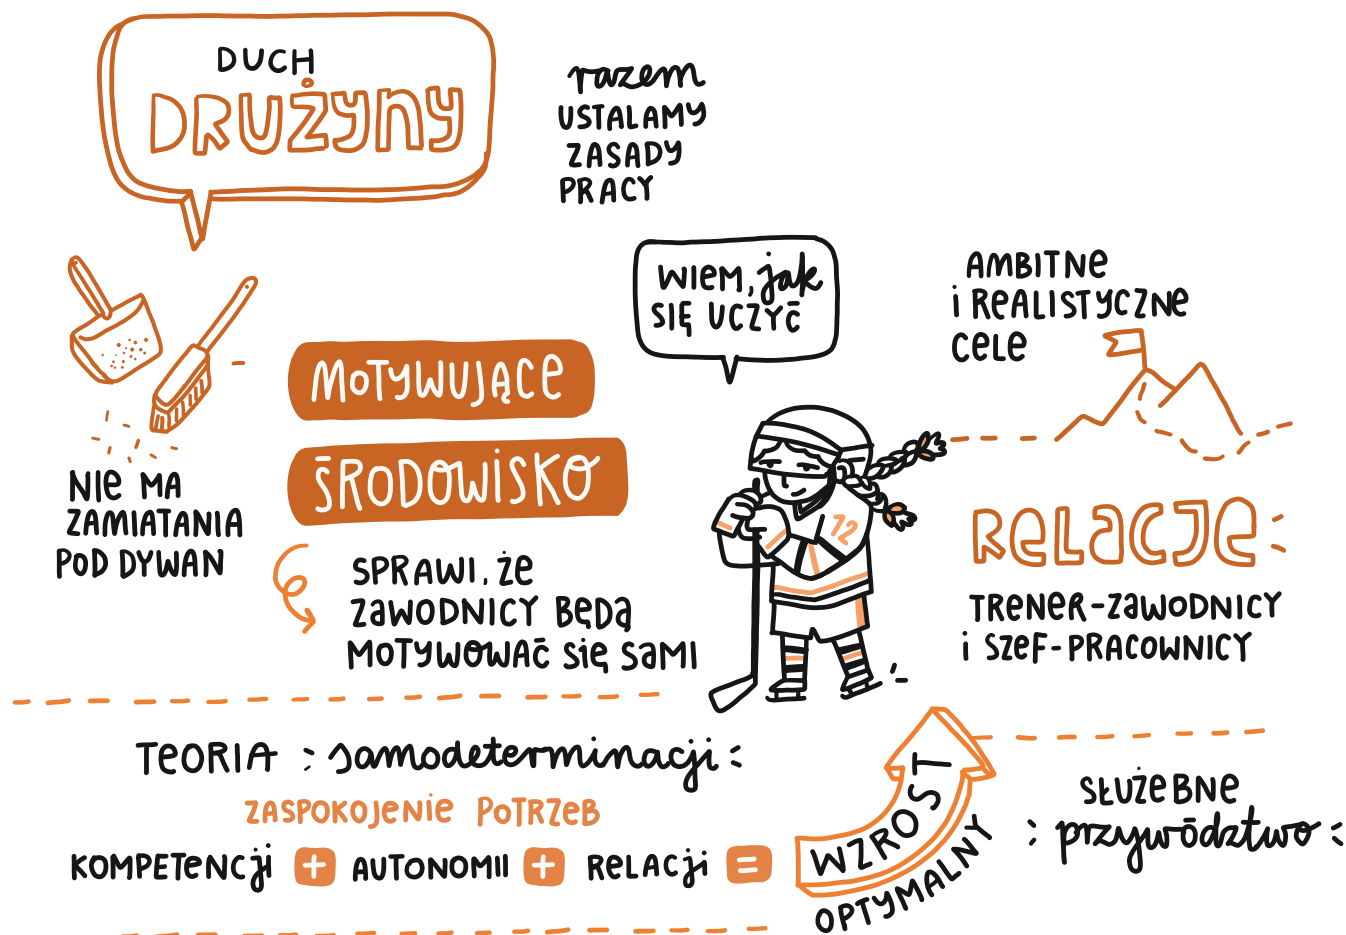 DUCH
DRUŻYNY
razem
USTALAMY
ZASADY
PRACY
WIEM, jak
SIĘ UCZYĆ
AMBITNE
i REALISTYCZNE
CELE
MOTYWUJĄCE
ŚRODOWISKO
NIE MA
ZAMIATANIA
POD DYWAN
SPRAWI, ŻE
ZAWODNICY BĘDĄ
MOTYWOWAĆ SIĘ SAMI
12
RELACJE
TRENER-ZAWODNICY
i SZEF-PRACOWNICY
TEORIA samodeterminacji
ZASPOKOJENIE POTRZEB
KOMPETENCJI + AUTONOMII + RELACJI =
WZROST
OPTYMALNY
SŁUŻEBNE
przywództwo